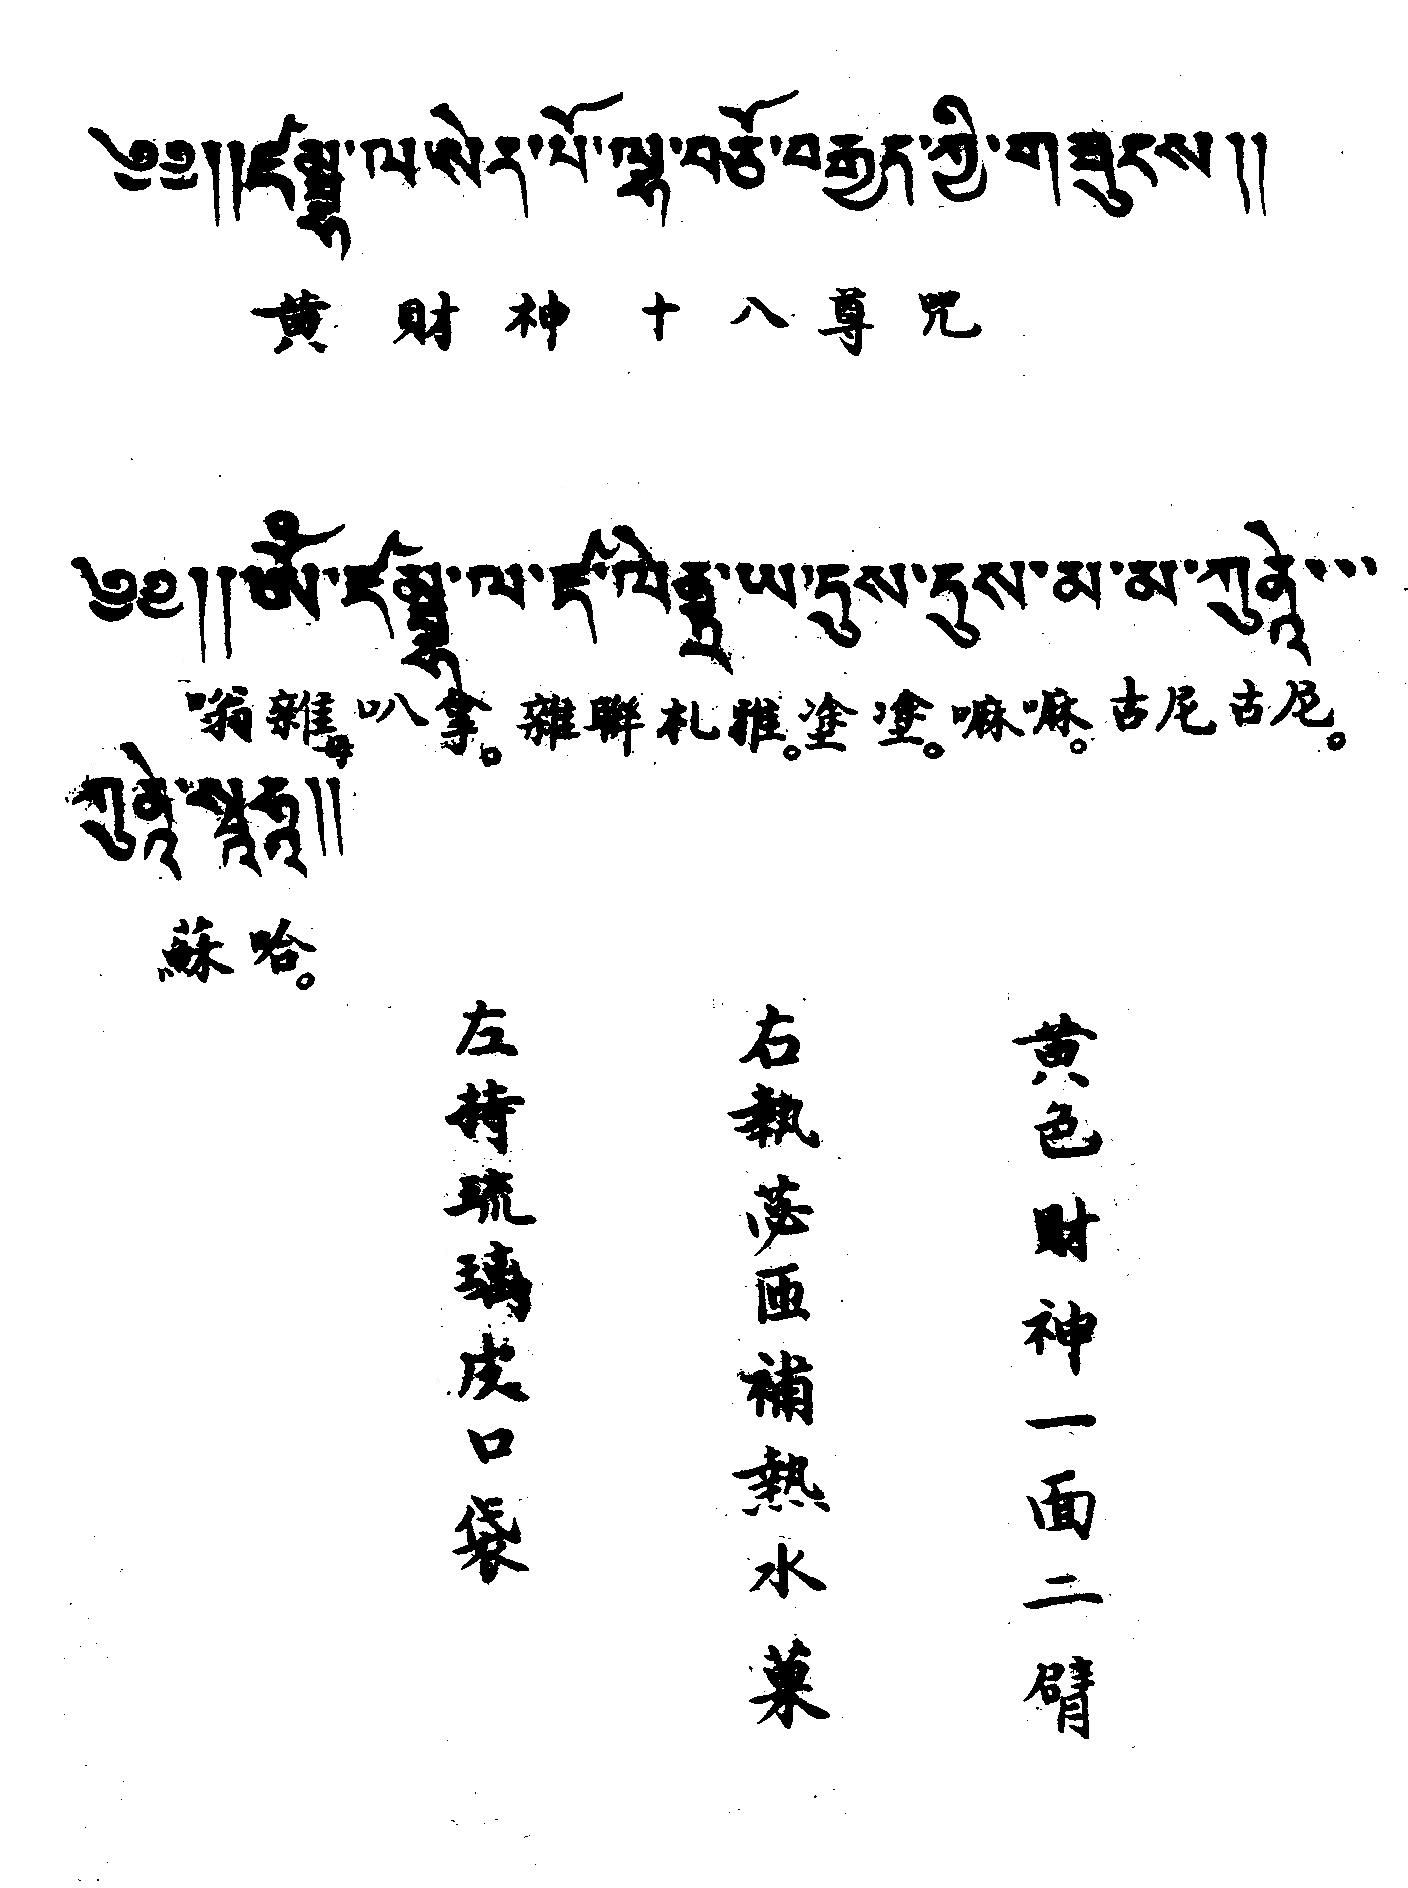 ༄༅།།ཛམྦྷ་ལ་སེར་པོ་ལྷ་བཅོ་བརྒྱད་ཀྱི་གཟུངས།།
黄財神十八尊咒
༄༅།།ཨོཾ་ཛམྦྷ་ལ་ཛ་ལེནྡྲ་ཡ་དུས་དུས་མ་མ་ཀུཎྜེ་་་
嗡雜母叭拿。雜聯札雅。塗塗。嘛嘛。古尼古尼。
སྭཱཧཱ།།
蘇哈。
黄色財神一面二臂
右執匝補熱水菓
左持琉璃皮口袋